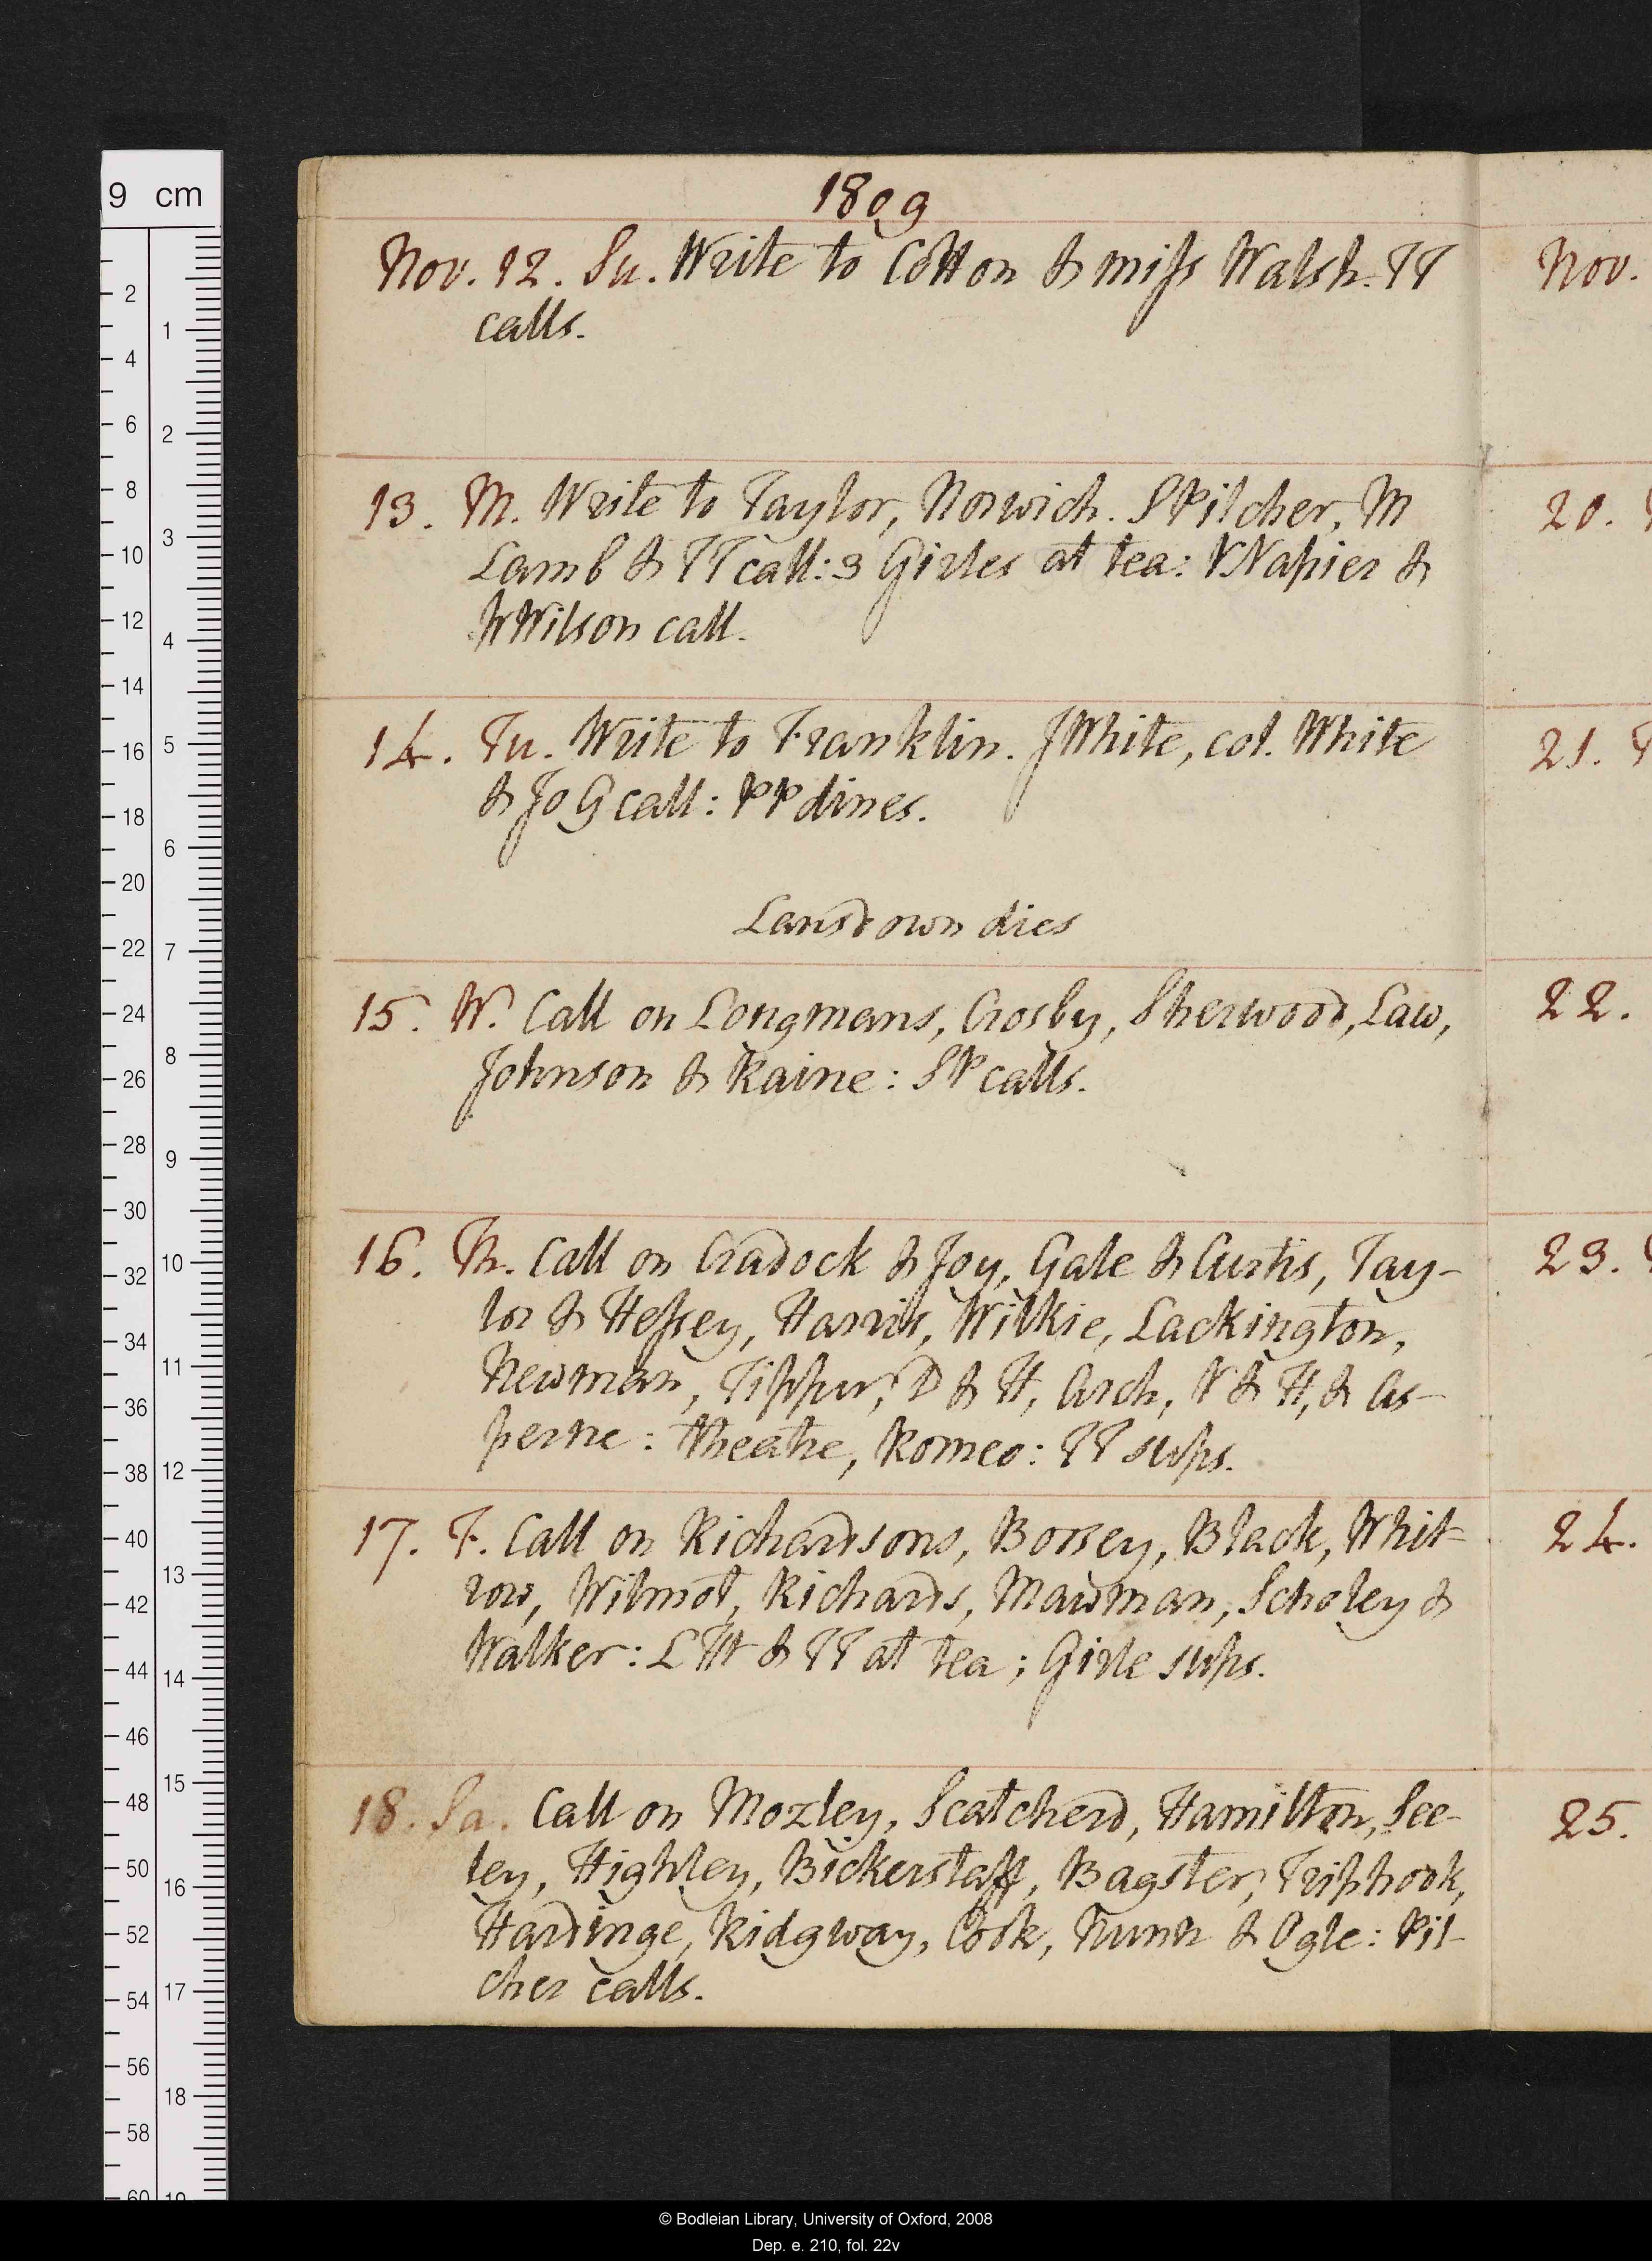 1809
Nov. 12. Su. Write to Cotton & miss Walsh. TT
calls.
13. M. Write to Taylor, Norwich. SPilcher, M
Lamb & TT call: 3 Girles at tea: VNapier &
WWilson call.
14. Tu. Write to Franklin. JWhite, col. White
& Jo G call: PP dines.
Lansdown dies
15. W. Call on Longmans, Crosby, Sherwood, Law,
Johnson & Raine: SP calls.
16. Th. Call on Cradock & Joy, Gale & Curtis, Tay-
lor & Hessey, Harris, Wilkie, Lackington,
Newman, Tipper, D & H, Arch, V & H, & As-
perne: theatre, Romeo: TT sups.
17. F. Call on Richardsons, Boosey, Black, Whit-
row, Wilmot, Richards, Mawman, Scholey &
Walker: L & TT at tea; Girle sups.
18. Sa. Call on Mozley, Scatcherd, Hamilton, See-
ley, Highley, Bickerstaff, Bagster, Triphook,
Hardinge, Ridgway, Cook, Nunn & Ogle: Pil-
cher calls.
Nov.
20.
21. T
22.
23.
24.
25.
9 cm
2
4
6
8
10
12
14
16
18
20
22
24
26
28
30
32
34
36
38
40
42
44
46
48
50
52
54
56
58
60
1
2
3
4
5
6
7
8
9
10
11
12
13
14
15
16
17
18
19
© Bodleian Library, University of Oxford, 2008
Dep. e. 210, fol. 22v